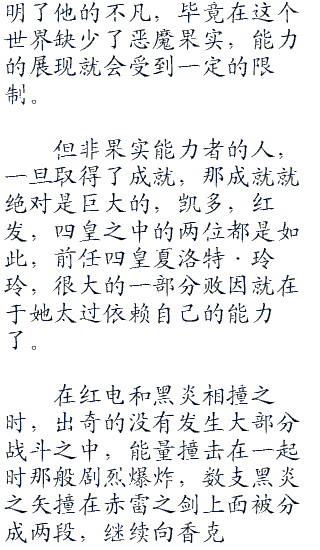 明了他的不凡，毕竟在这个
世界缺少了恶魔果实，能力
的展现就会受到一定的限
制。
但非果实能力者的人，
一旦取得了成就，那成就就
绝对是巨大的，凯多，红
发，四皇之中的两位都是如
此，前任四皇夏洛特·玲
玲，很大的一部分败因就在
于她太过依赖自己的能力
了。
在红电和黑炎相撞之
时，出奇的没有发生大部分
战斗之中，能量撞击在一起
时那般剧烈爆炸，数支黑炎
之矢撞在赤雷之剑上面被分
成两段，继续向香克